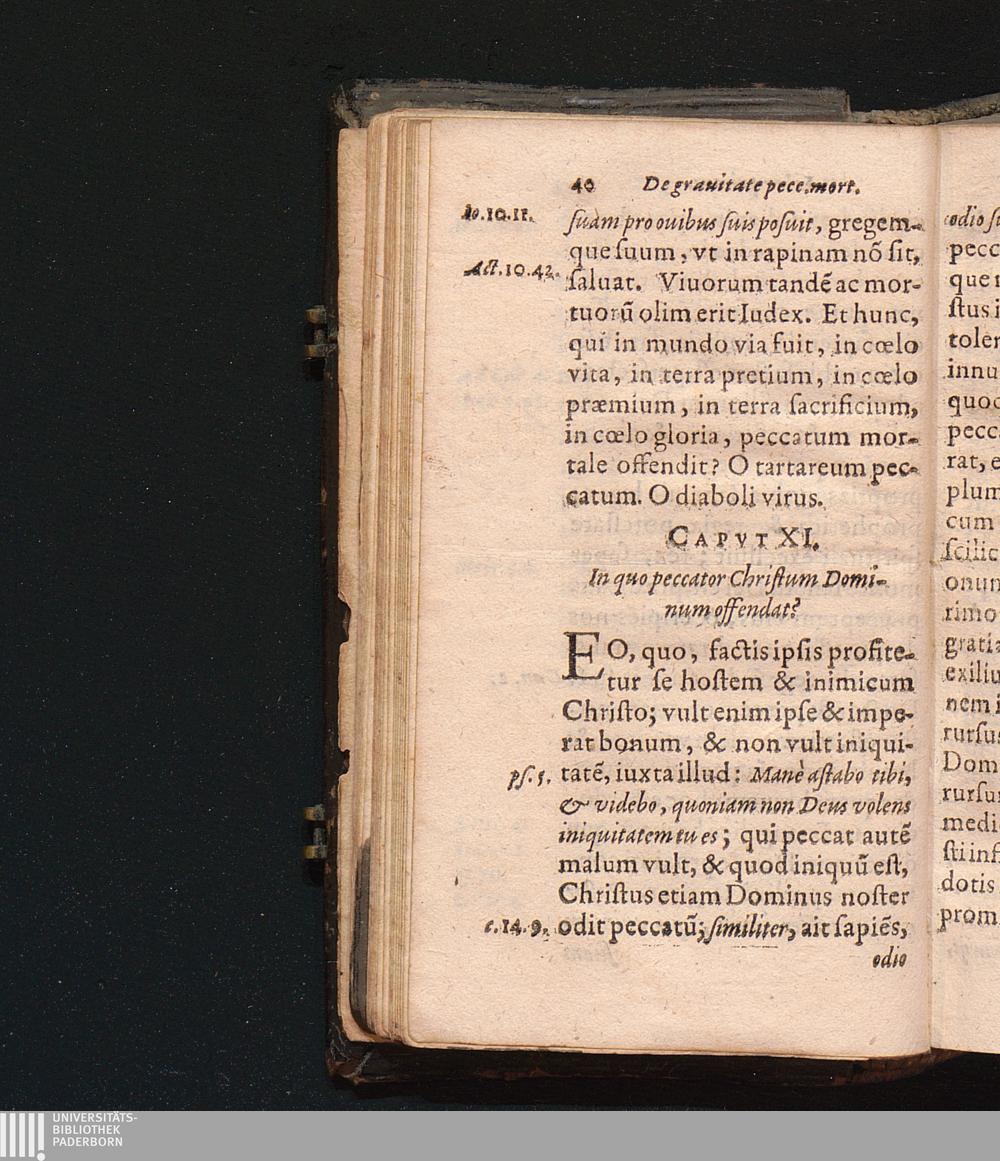 40 De grauitate pecc. mort.
Io.10.11. ſuam pro ouibus ſuis poſuit, gregem-
que ſuum, vt in rapinam nõ ſit,
Act.10.42. ſaluat. Viuorum tandē ac mor-
tuorū olim erit Iudex. Et hunc,
qui in mundo via fuit, in cœlo
vita, in terra pretium, in cœlo
præmium, in terra ſacrificium,
in cœlo gloria, peccatum mor-
tale offendit? O tartareum pec-
catum. O diaboli virus.
CAPVT XI.
In quo peccator Chriſtum Domi-
num offendat?
EO, quo, factis ipſis profite-
tur ſe hoſtem & inimicum
Chriſto; vult enim ipſe & impe-
rat bonum, & non vult iniqui-
pſ.5. tatē, iuxta illud: Manè aſtabo tibi,
& videbo, quoniam non Deus volens
iniquitatem tu es; qui peccat autē
malum vult, & quod iniquū eſt,
Chriſtus etiam Dominus noſter
c.14.9. odit peccatū; ſimiliter, ait ſapiēs,
odio
odio ſu
pecc
que
ſtus i
toler
innu
quod
pecc
rat, e
plum
cum
ſcilic
onum
rimo
gratia
exiliu
nem i
rurſus
Dom
rurſu
medi
ſti inf
dotis
prom
UNIVERSITÄTS-
BIBLIOTHEK
PADERBORN